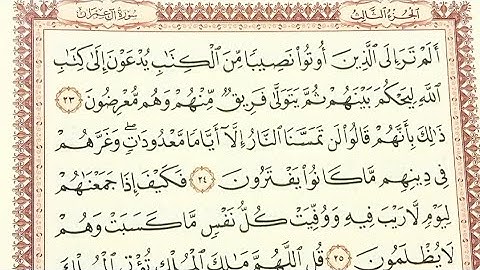 الجزء الثالث
سورة آل عمران
أَلَمْ تَرَ إِلَى الَّذِينَ أُوتُوا نَصِيبًا مِّنَ الْكِتَابِ يُدْعَوْنَ إِلَىٰ كِتَابِ
اللَّهِ لِيَحْكُمَ بَيْنَهُمْ ثُمَّ يَتَوَلَّىٰ فَرِيقٌ مِّنْهُمْ وَهُم مُّعْرِضُونَ ٢٣
ذَٰلِكَ بِأَنَّهُمْ قَالُوا لَن تَمَسَّنَا النَّارُ إِلَّا أَيَّامًا مَّعْدُودَاتٍ ۖ وَغَرَّهُمْ
فِي دِينِهِم مَّا كَانُوا يَفْتَرُونَ ٢٤ فَكَيْفَ إِذَا جَمَعْنَاهُمْ
لِيَوْمٍ لَّا رَيْبَ فِيهِ وَوُفِّيَتْ كُلُّ نَفْسٍ مَّا كَسَبَتْ وَهُمْ
لَا يُظْلَمُونَ ٢٥ قُلِ اللَّهُمَّ مَالِكَ الْمُلْكِ تُؤْتِي الْمُلْكَ